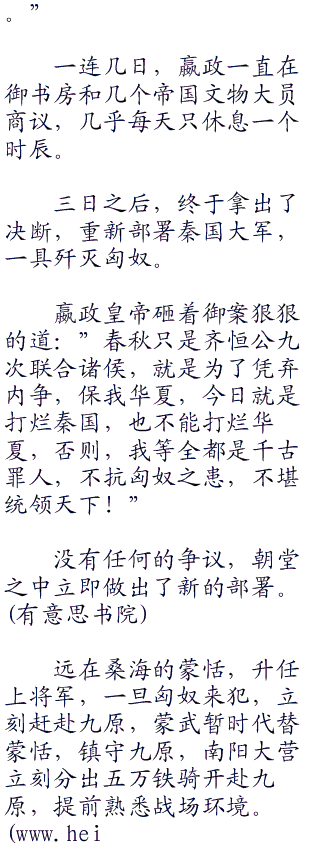 。”
一连几日，嬴政一直在
御书房和几个帝国文物大员
商议，几乎每天只休息一个
时辰。
三日之后，终于拿出了
决断，重新部署秦国大军，
一具歼灭匈奴。
嬴政皇帝砸着御案狠狠
的道：”春秋只是齐恒公九
次联合诸侯，就是为了凭弃
内争，保我华夏，今日就是
打烂秦国，也不能打烂华
夏，否则，我等全都是千古
罪人，不抗匈奴之患，不堪
统领天下！”
没有任何的争议，朝堂
之中立即做出了新的部署。
(有意思书院)
远在桑海的蒙恬，升任
上将军，一旦匈奴来犯，立
刻赶赴九原，蒙武暂时代替
蒙恬，镇守九原，南阳大营
立刻分出五万铁骑开赴九
原，提前熟悉战场环境。
(www.hei